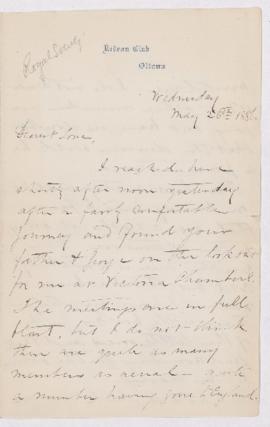 Royal Society
Rideau Club
Ottawa
Wednesday
May 26th 188
Dearest
I reached here
shortly after noon yesterday
after a fairly comfortable
journey and found your
father & on the look out
for me at Victoria Chambers.
The meetings are in full
blast, but I do not think
there are quite as many
members as usual – quite
a number having gone to England.